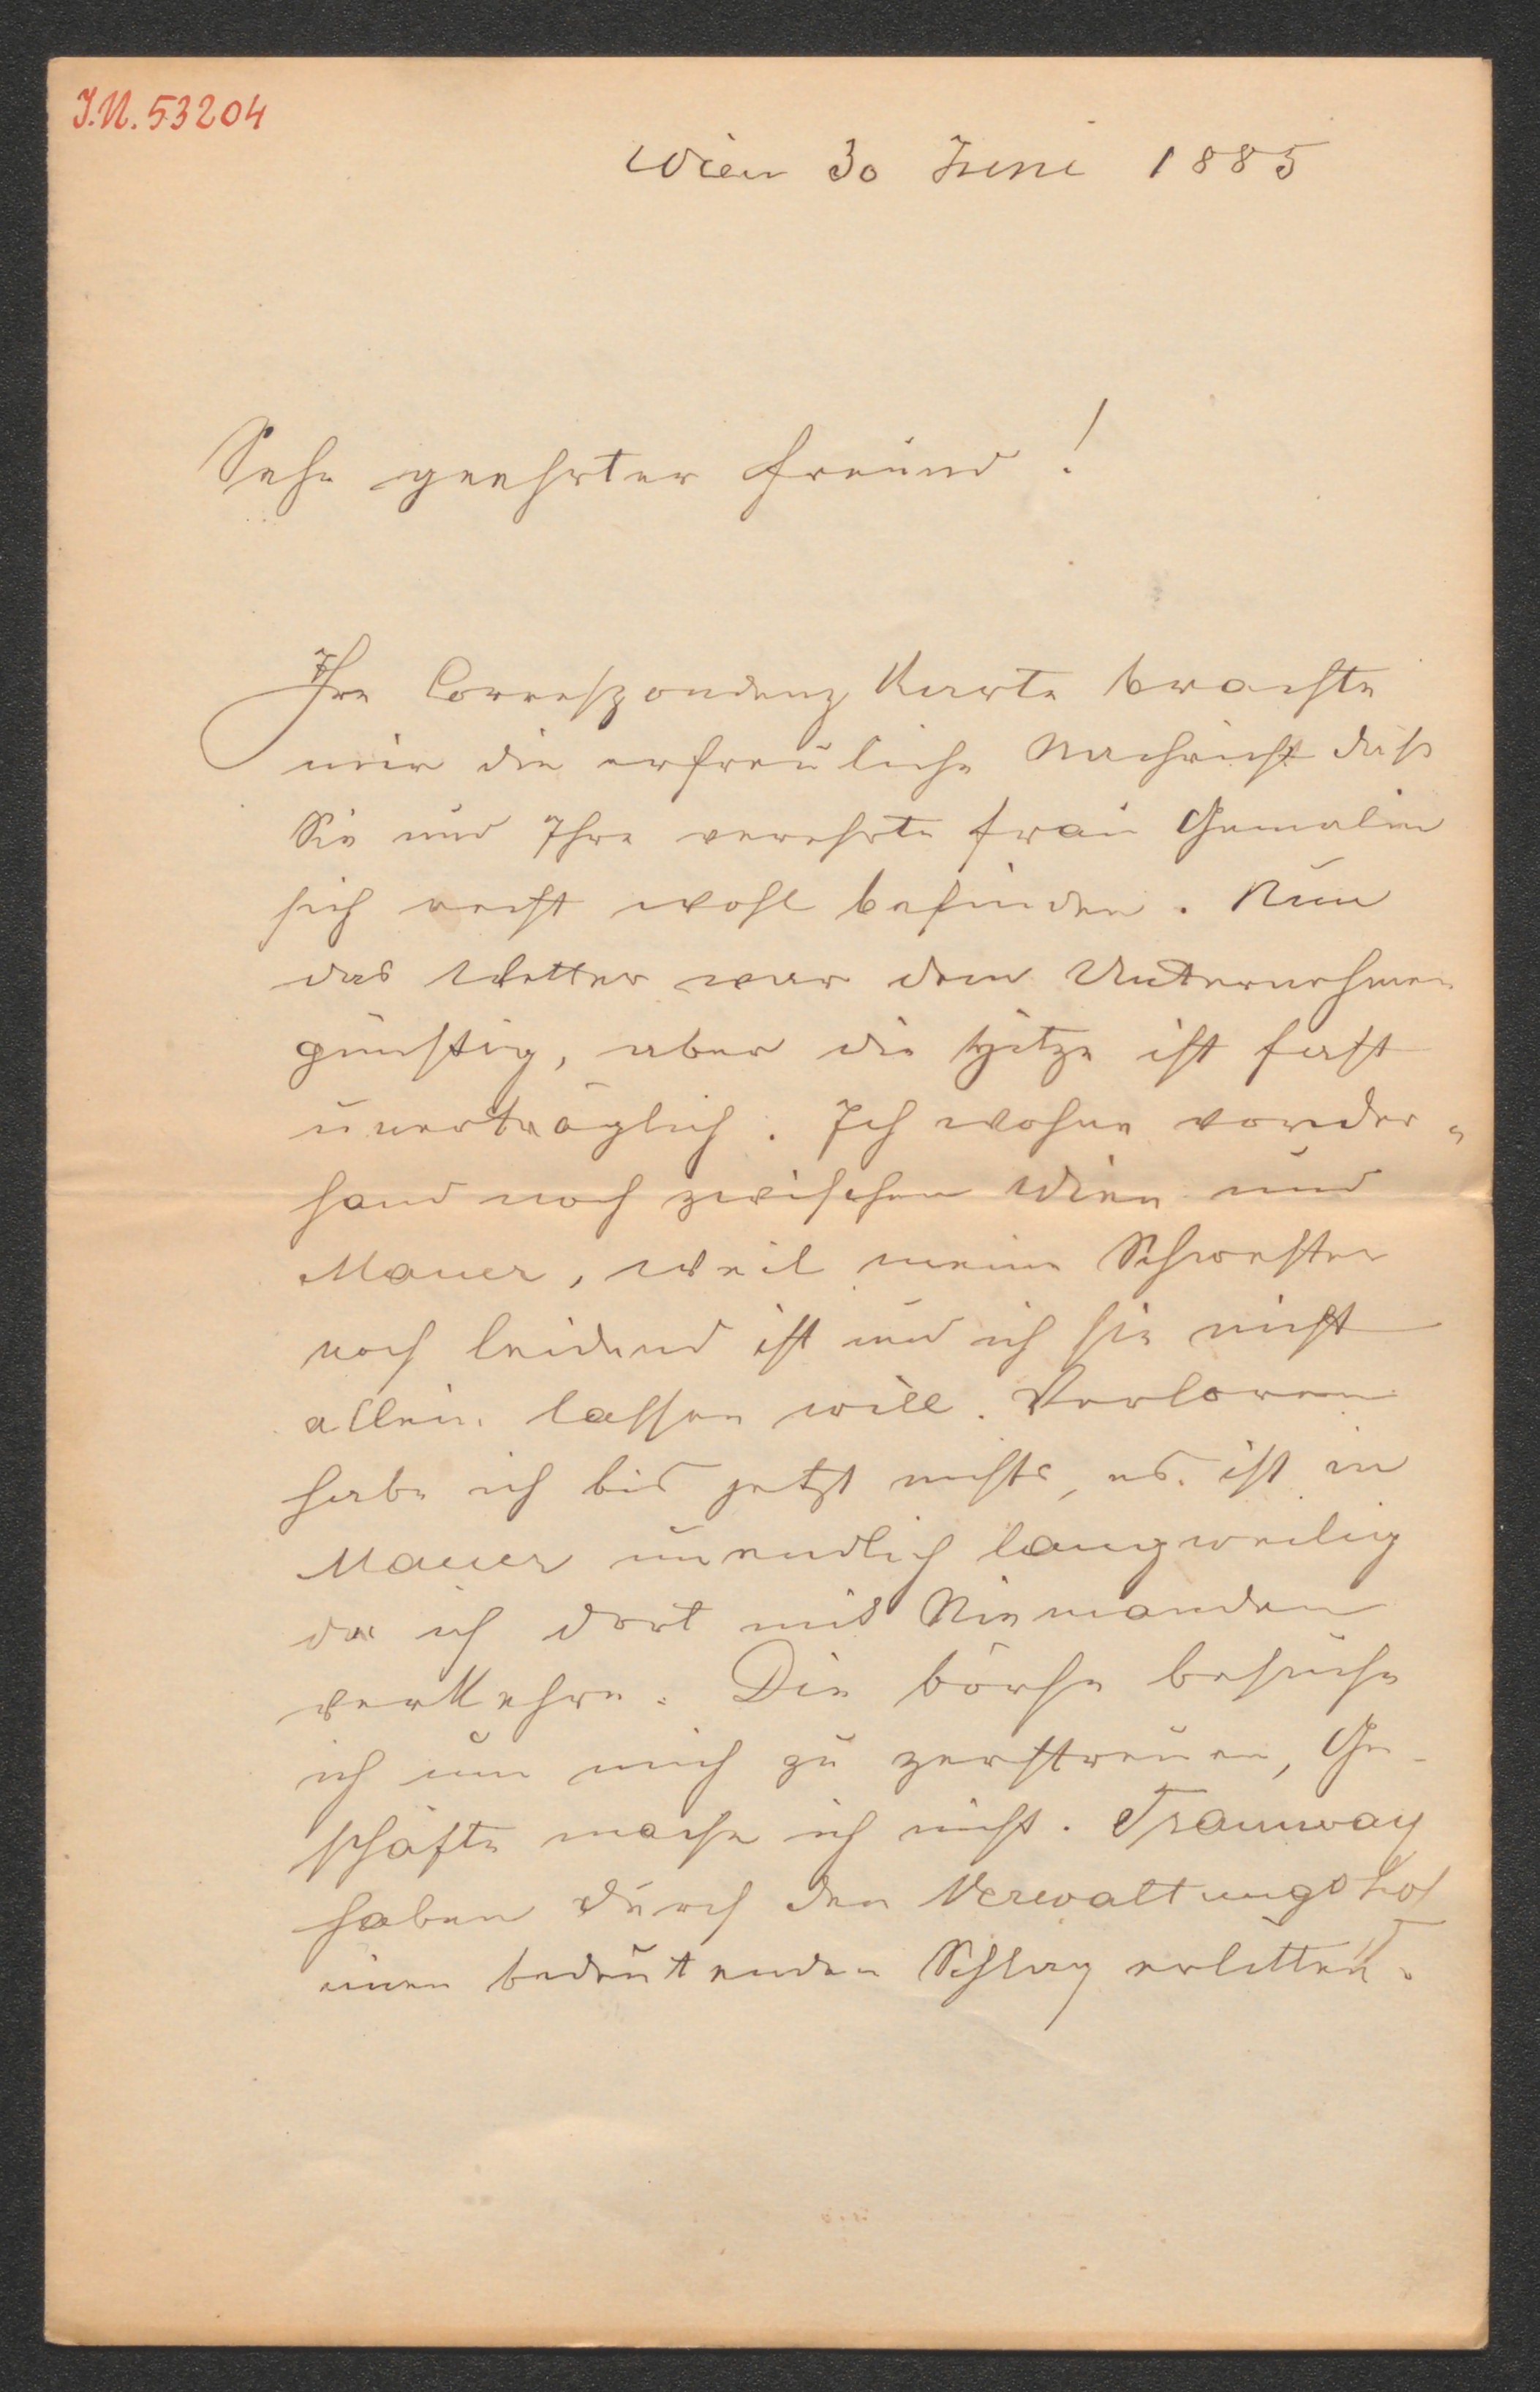 J.N. 53204
Wien 30 Juni 1885
Sehr geehrter Freund!
Ihre Correspondenz Karte brachte
mir die erfreuliche Nachricht daß
Sie und Ihre verehrte Frau Gemalin
sich recht wohl befinden. Nun
das Wetter war dem Unternehmen
günstig, aber die Hitze ist fast
unerträglich. Ich wohne vonder=
hand noch zwischen Wien und
Mauer, weil meine Schwester
noch leidend ist und ich sie nicht
allein lassen will. Verloren
habe ich bis jetzt nichts, es ist in
Mauer unendlich langweilig
da ich dort mit Niemanden
verkehre. Die börse besuche
ich um mich zu zerstreuen, Ge-
schäfte mache ich nicht. Tramway
haben durch den Verwaltungshof
einen bedeutenden Schlag erlitten.